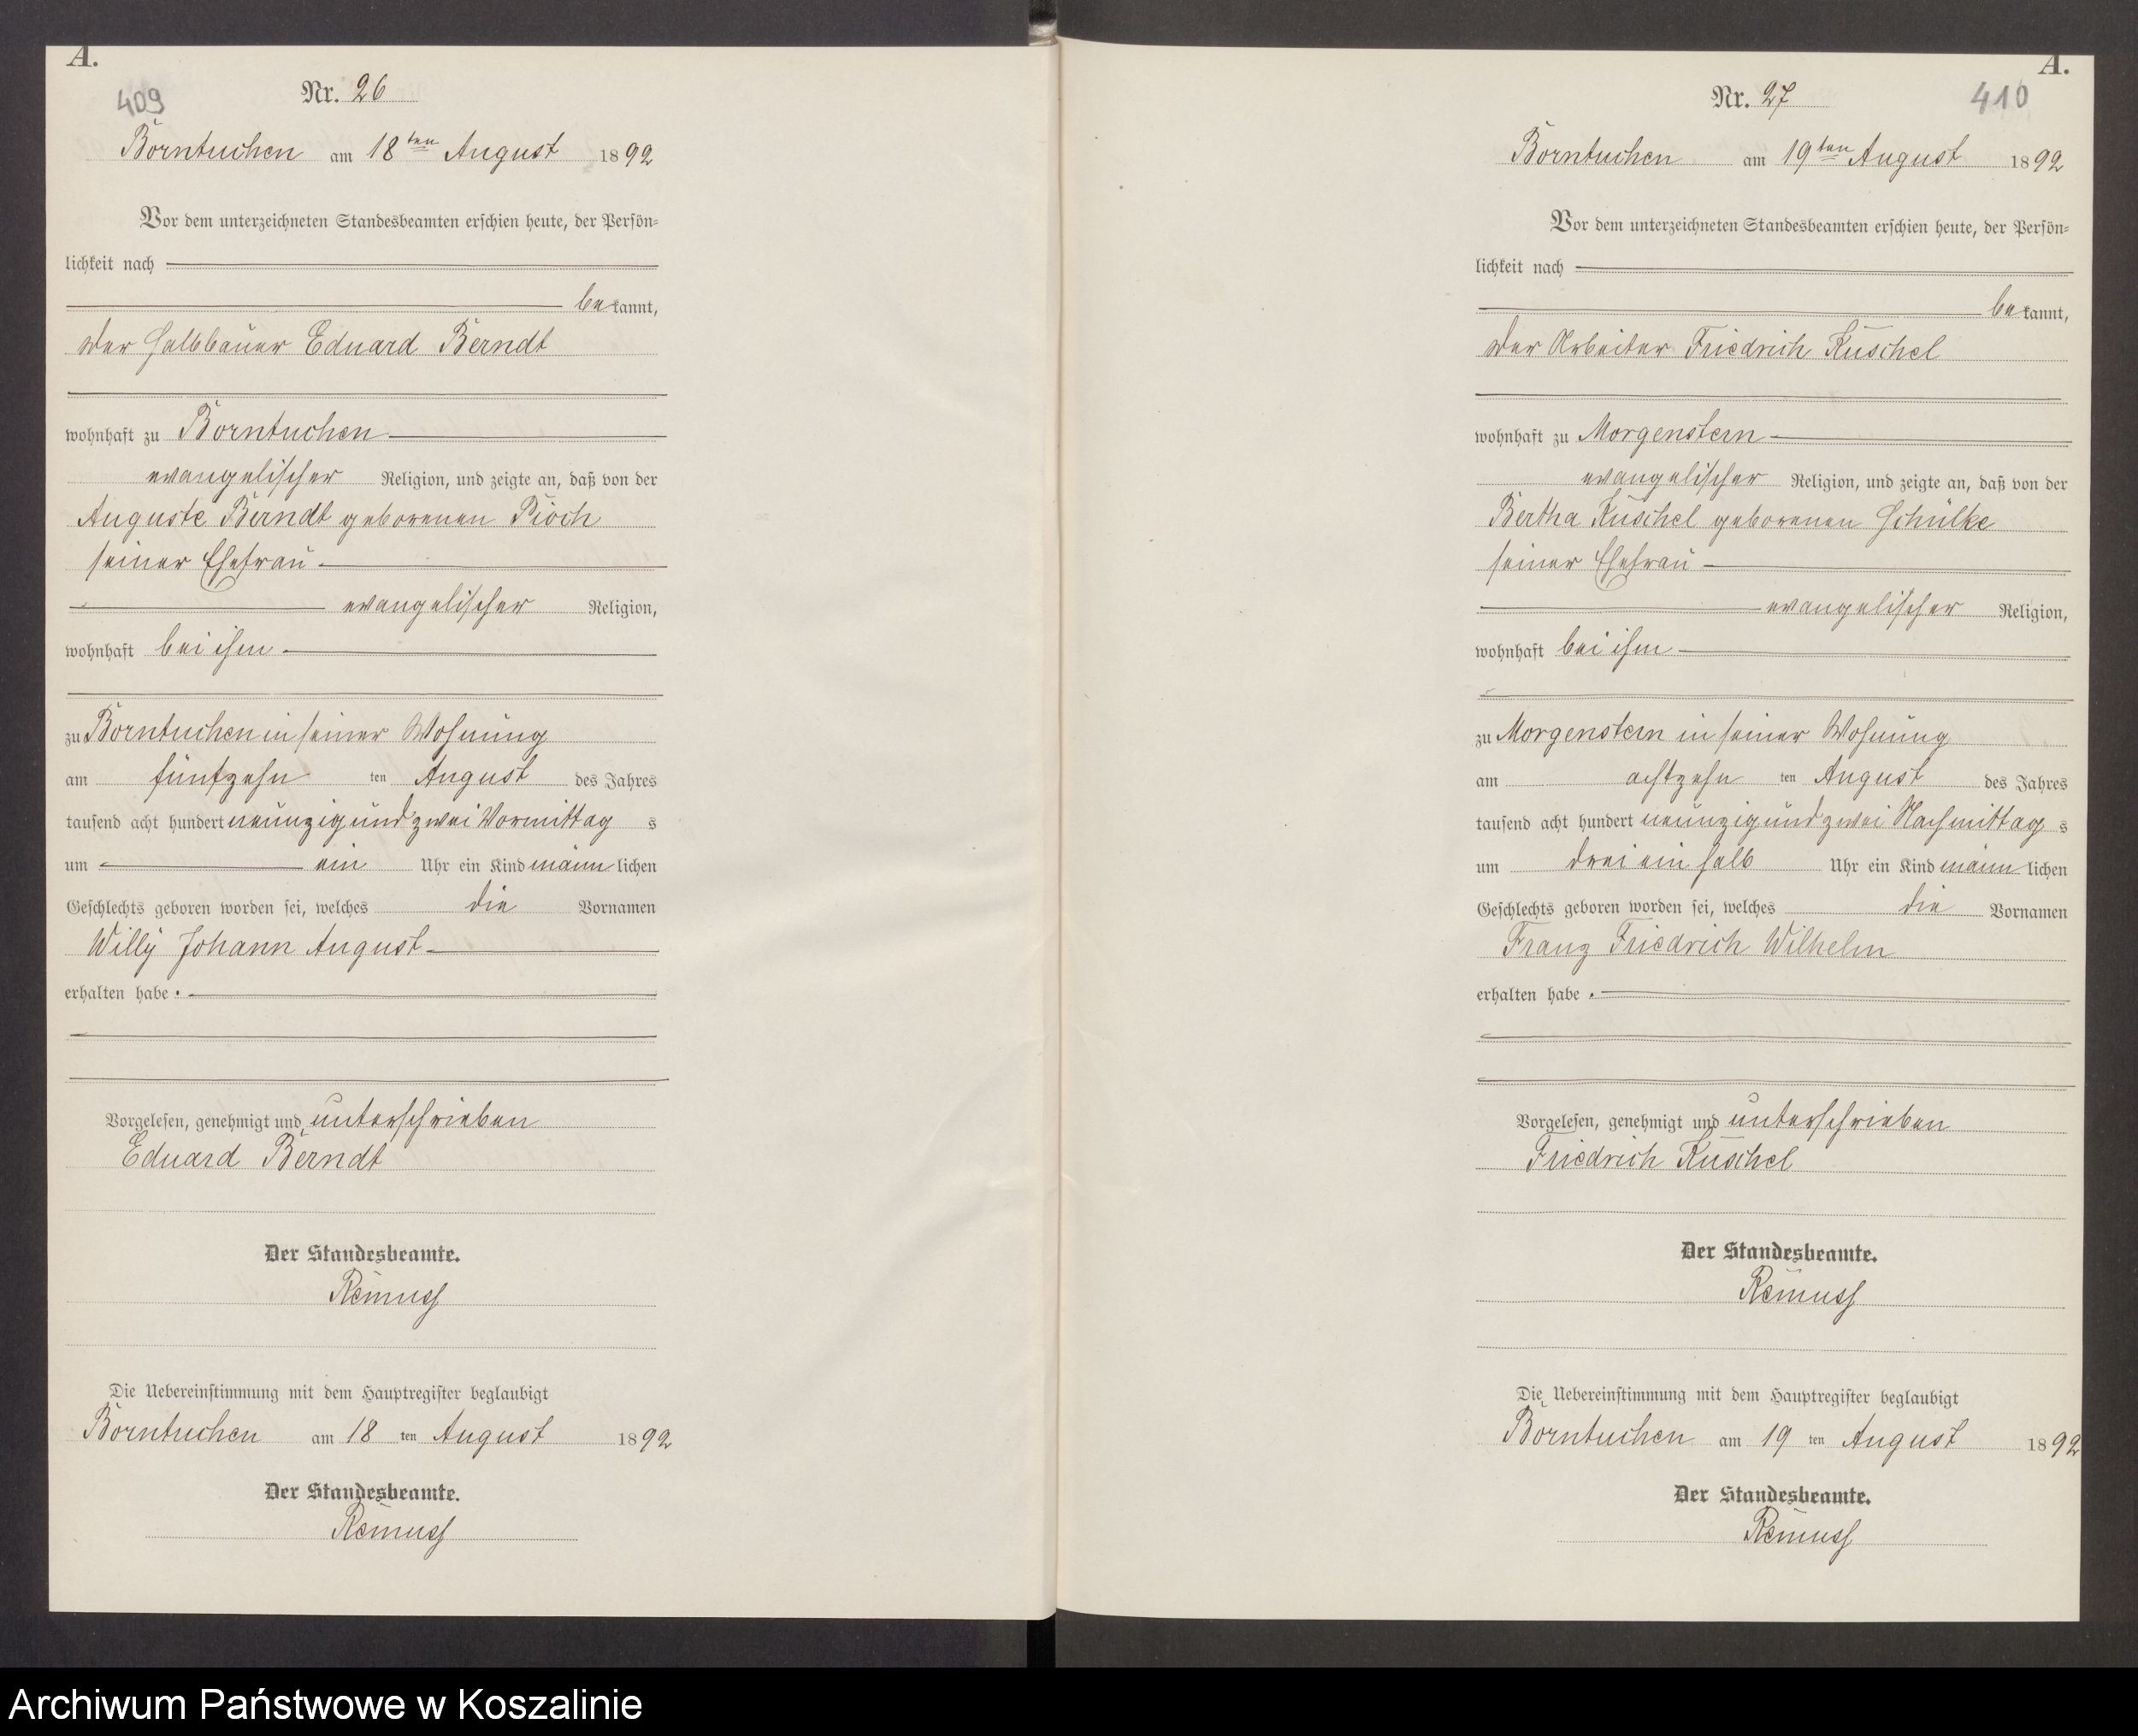 A.
409
Nr. 26
Borntuchen am 18ten August 1892
Vor dem unterzeichneten Standesbeamten erschien heute, der Persön-
lichkeit nach
bekannt,
der Halbbauer Eduard Berndt
wohnhaft zu Borntuchen
evangelischer Religion, und zeigte an, daß von der
Auguste Berndt geborenen Pioch
seiner Ehefrau
evangelischer Religion,
wohnhaft bei ihm
zu Borntuchen in seiner Wohnung
am fünfzehn ten August des Jahres
tausend acht hundert neunzig und zwei Vormittag s
um ein Uhr ein Kind männlichen
Geschlechts geboren worden sei, welches die Vornamen
Willy Johann August
erhalten habe.
Vorgelesen, genehmigt und unterschrieben
Eduard Berndt
Der Standesbeamte.
Remuss
Die Uebereinstimmung mit dem Hauptregister beglaubigt
Borntuchen am 18 ten August 1892
Der Standesbeamte.
Remuss
A.
410
Nr. 27
Borntuchen am 19ten August 1892
Vor dem unterzeichneten Standesbeamten erschien heute, der Persön-
lichkeit nach
bekannt,
der Arbeiter Friedrich Kuschel
wohnhaft zu Morgenstern
evangelischer Religion, und zeigte an, daß von der
Bertha Kuschel geborenen Schülke
seiner Ehefrau
evangelischer Religion,
wohnhaft bei ihm
zu Morgenstern in seiner Wohnung
am achtzehn ten August des Jahres
tausend acht hundert neunzig und zwei Nachmittag s
um drei ein halb Uhr ein Kind männlichen
Geschlechts geboren worden sei, welches die Vornamen
Franz Friedrich Wilhelm
erhalten habe.
Vorgelesen, genehmigt und unterschrieben
Friedrich Kuschel
Der Standesbeamte.
Remuss
Die Uebereinstimmung mit dem Hauptregister beglaubigt
Borntuchen am 19 ten August 1892
Der Standesbeamte.
Remuss
Archiwum Państwowe w Koszalinie